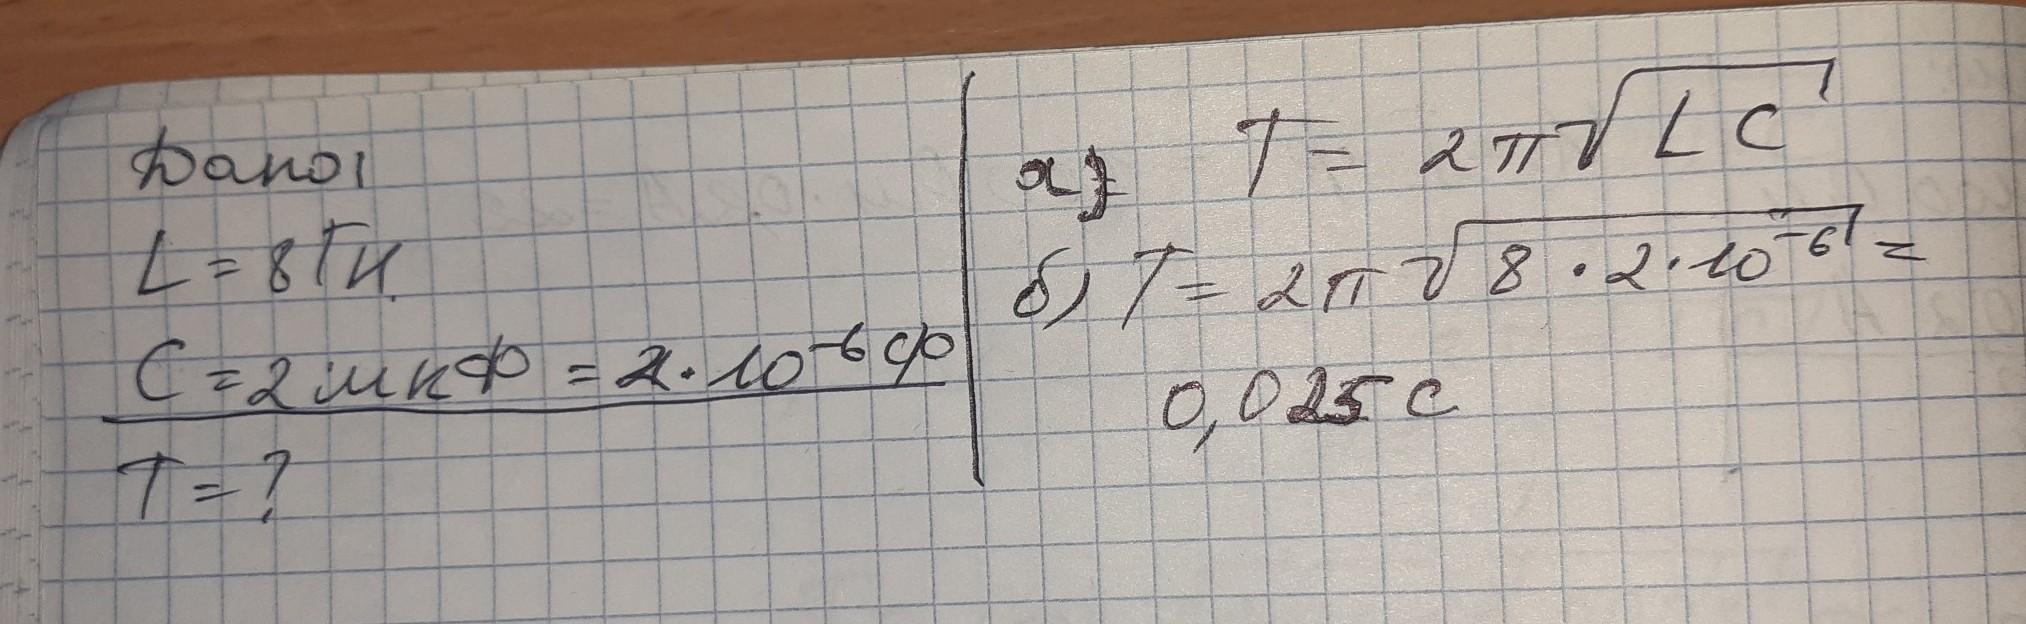 Дано:
L = 8 Гн
C = 2 мкФ = 2 · 10⁻⁶ Ф
T = ?
а) T = 2π√LC
б) T = 2π√8 · 2 · 10⁻⁶ =
0,025 с